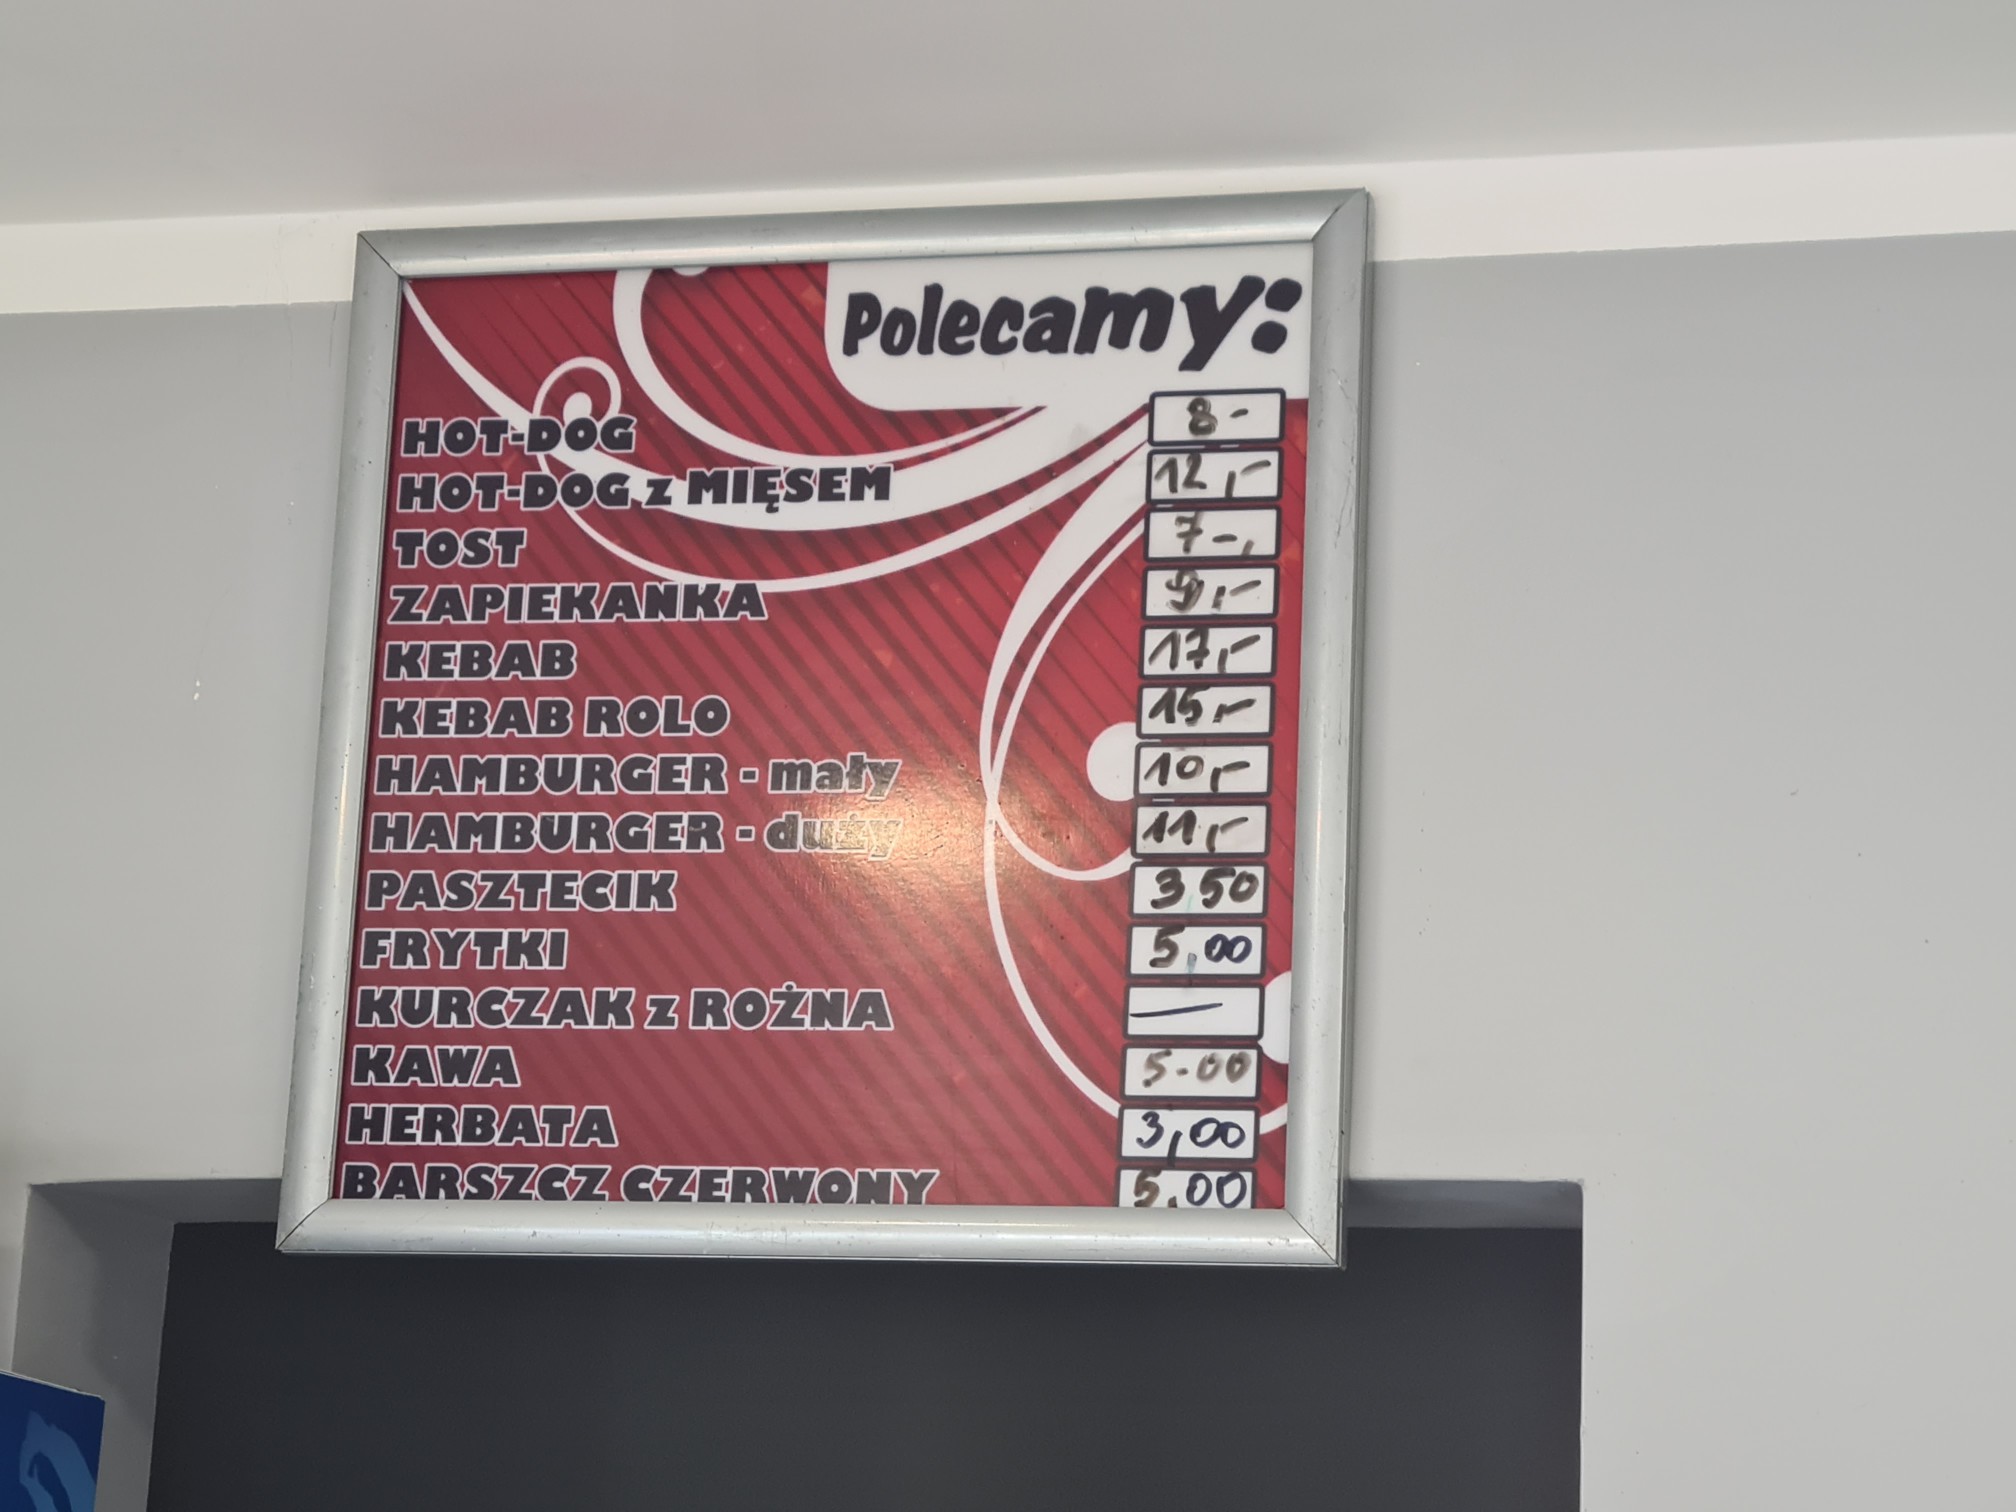 Polecamy:
HOT-DOG 8-
HOT-DOG z MIĘSEM 12,-
TOST 7-,
ZAPIEKANKA 9,-
KEBAB 17,-
KEBAB ROLO 15,-
HAMBURGER - mały 10,-
HAMBURGER - duży 11,-
PASZTECIK 3 50
FRYTKI 5,00
KURCZAK z ROŻNA —
KAWA 5.00
HERBATA 3,00
BARSZCZ CZERWONY 5,00